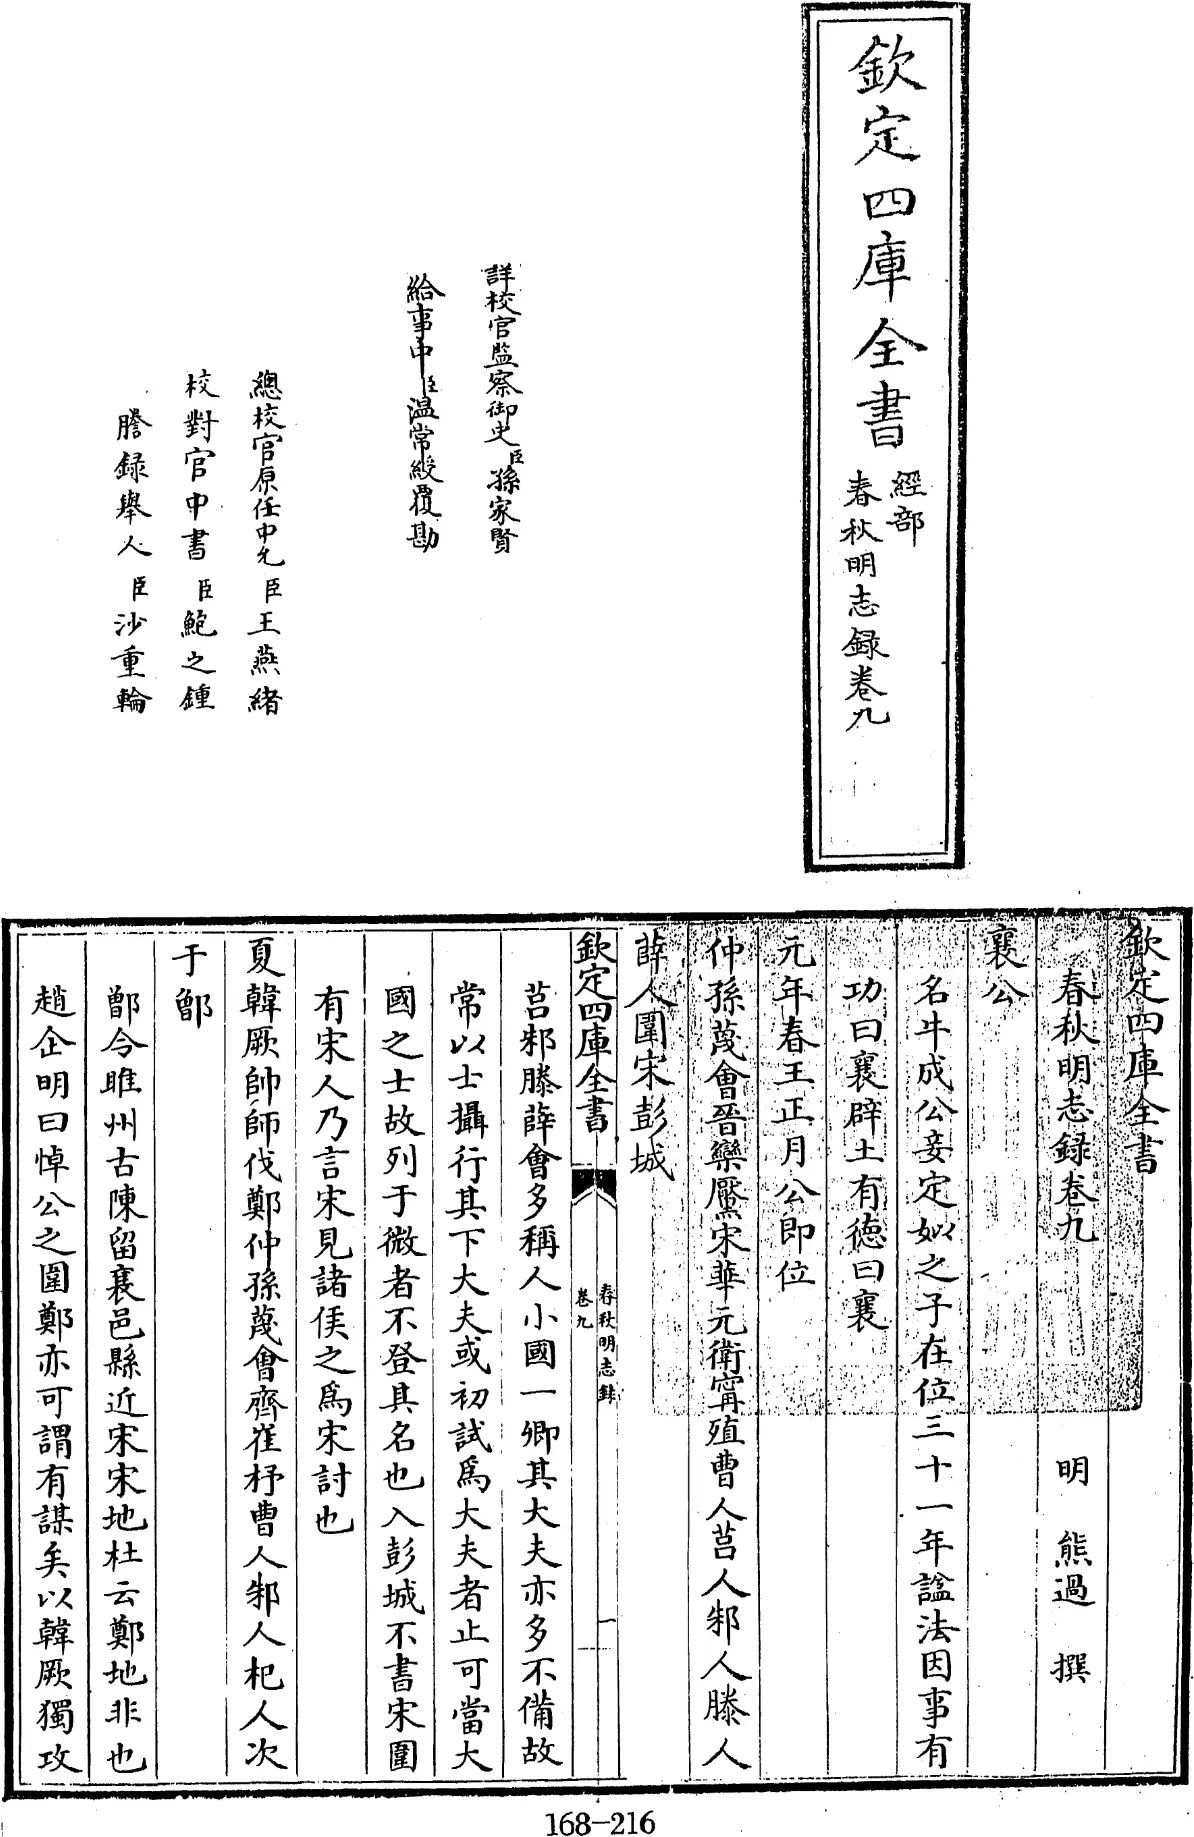 欽定四庫全書
經部
春秋明志録卷九
詳校官監察御史臣孫家賢
給事中臣温常綬覆勘
總校官原任中允臣王燕緒
校對官中書臣鮑之鍾
謄録舉人臣沙重輪
欽定四庫全書
春秋明志録卷九
明 熊過 撰
襄公
名牛成公妾定姒之子在位三十一年諡法因事有
功曰襄辟土有德曰襄
元年春王正月公即位
仲孫蔑會晉欒黶宋華元衛甯殖曹人莒人邾人滕人
薛人圍宋彭城
欽定四庫全書
春秋明志録
卷九
一
莒邾滕薛會多稱人小國一卿其大夫亦多不備故
常以士攝行其下大夫或初試爲大夫者止可當大
國之士故列于微者不登其名也入彭城不書宋圍
有宋人乃言宋見諸侯之爲宋討也
夏韓厥帥師伐鄭仲孫蔑會齊崔杼曹人邾人杞人次
于鄫
鄫今睢州古陳留襄邑縣近宋宋地杜云鄭地非也
趙企明曰悼公之圍鄭亦可謂有謀矣以韓厥獨攻
168-216